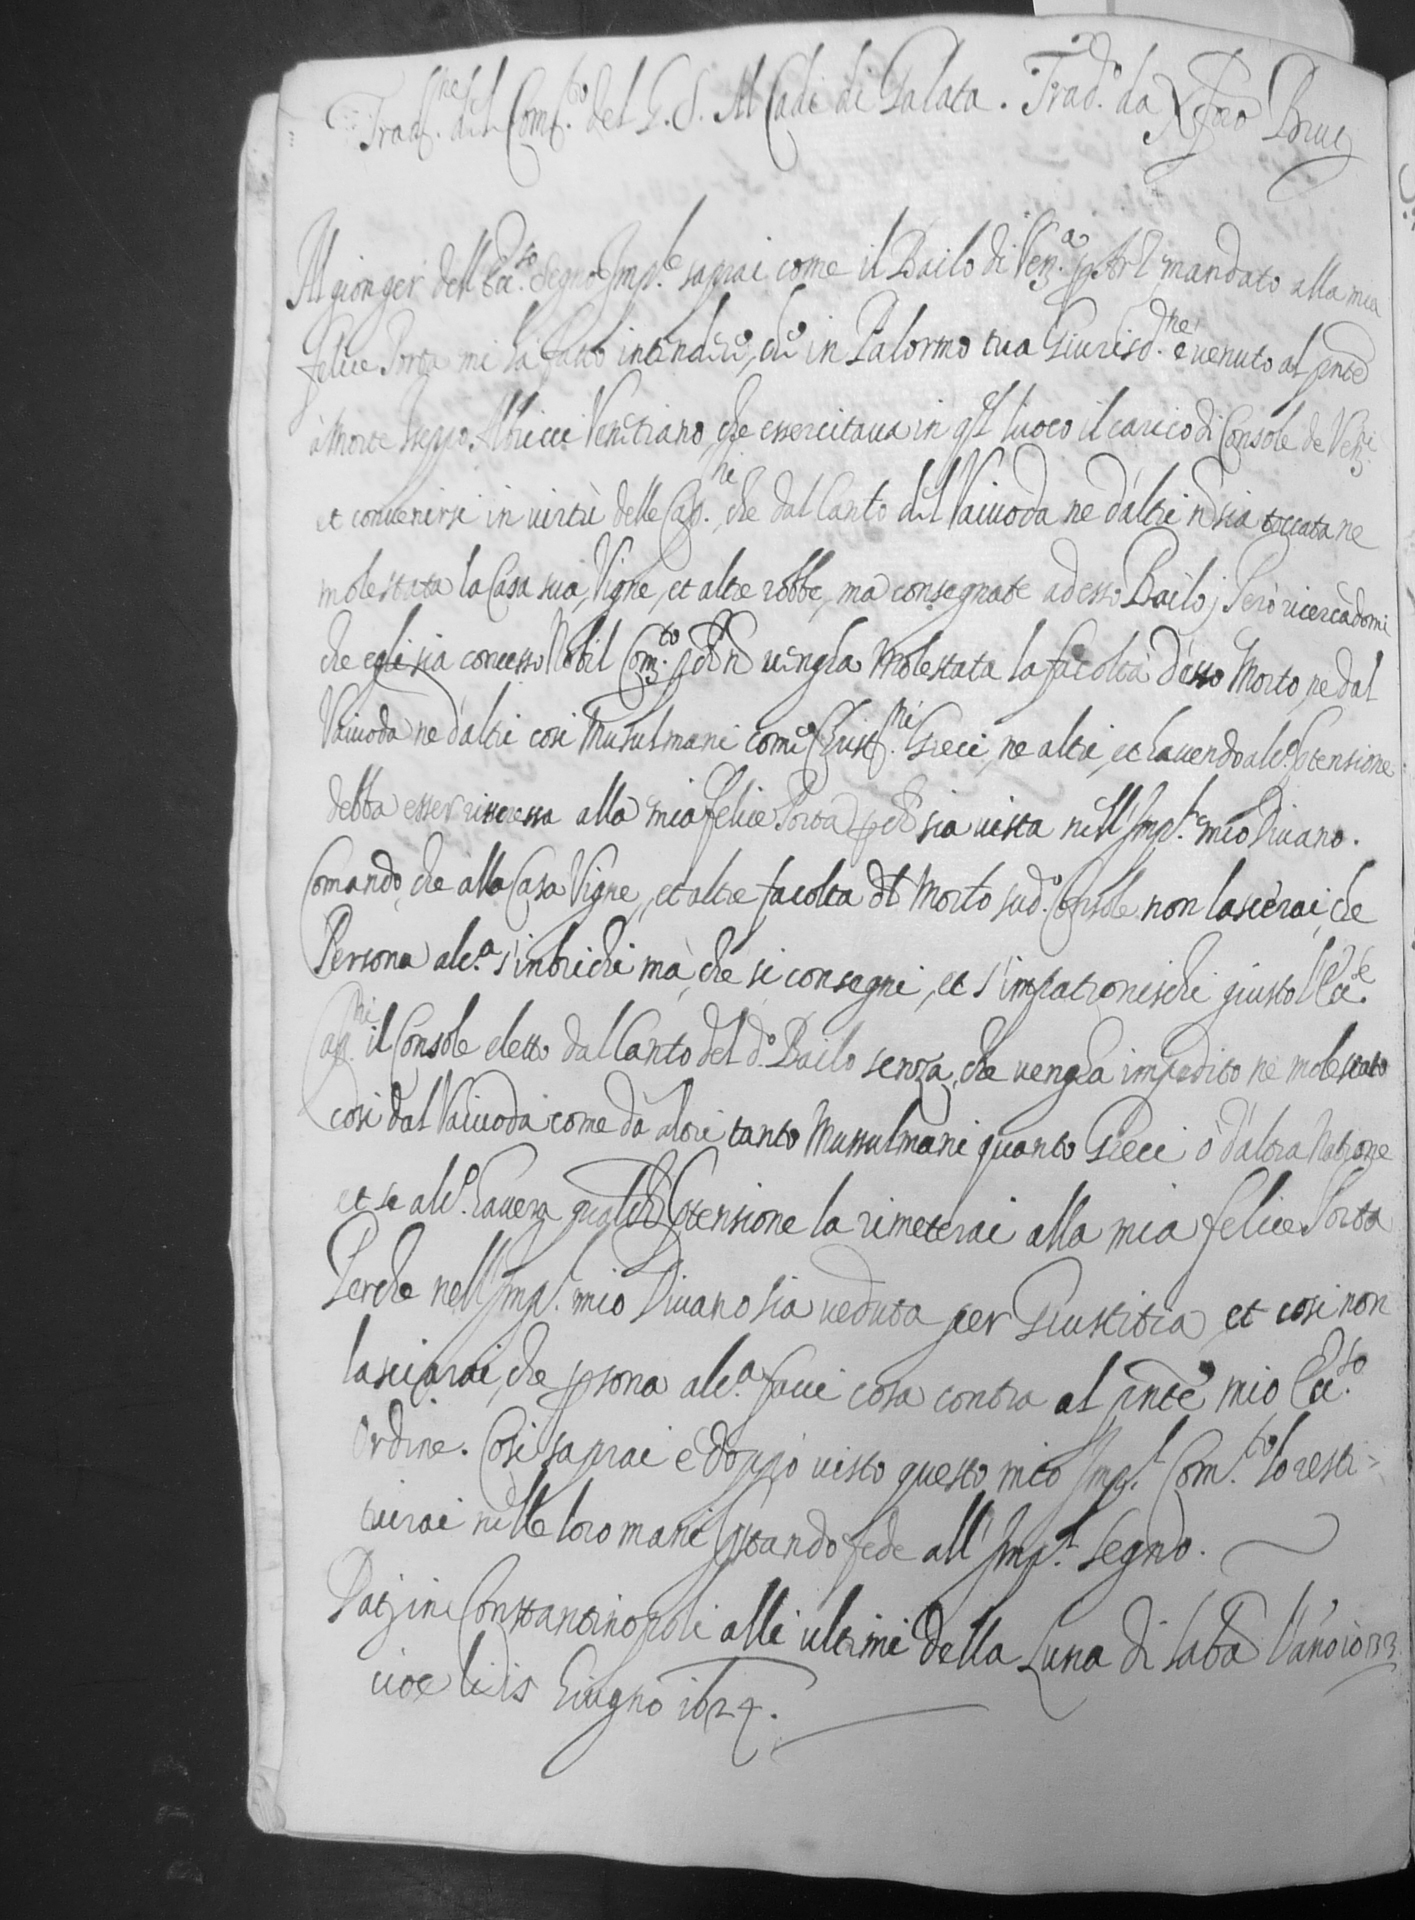 Trad.ne del Com.to del G. S. Al Cadi di Galata. Trad.o da Xforo Brut
Al gionger dell'Ecc.so segno Imp.le saprai come il Bailo di Ven.a mandato alla mia
felice Porta mi hà fatto intender, che in Palormo tua Giurisd.ne è venuto al pnte
à Morte Albricci Venetiano, che essercitava in ql luoco il carico di Console de Ven.i
et convenirsi in virtù delle Cap.ni, che dal Canto del Vaivoda ne d'altri nō sia toccata ne
molestata la Casa sua, Vigne, et altre robbe, mà consegnate ad esso Bailo; Però ricercādomi
che egli sia concesso Nobil Com.to, pche nō venghi molestata la facoltà d'esso Morto, ne dal
Vaivoda ne d'altri cosi Musulmani come Christ.ni Greci, ne altri, et havendo alc.o ptensione
debba esser rimessa alla mia felice Porta pche sia vista nell'Imp.le mio Divano.
Comando, che alla Casa Vigne, et altre facolta del Morto sud.o Console non lascierai, che
Persona alc.a s'intrichi mà, che si consegni, et s'impatronischi giusto l'Ecc.e
Cap.ni il Console eletto dal Canto del d.o Bailo senza, che venga impedito ne molestato
cosi dal Vaivoda come da altri tanto Mussulmani quanto Greci ò d'altra Natione
et se alc.o haverà qualche ptensione la rimeterai alla mia felice Porta
Perche nell'Imp.l mio Divano sia veduta per Giustitia, et cosi non
lasciarai, che psona alc.a facci cosa contra al pnte mio Ecc.so
Ordine. Cosi saprai è doppò visto questo mio Imp.l Com.to lo resti=
tuirai nelle loro mani pstando fede all'Imp.l segno.
Dat. in Constantinopoli alli ultimi della Luna di Sabā l'anō 1033
cioe li 15 Giugno 1624.